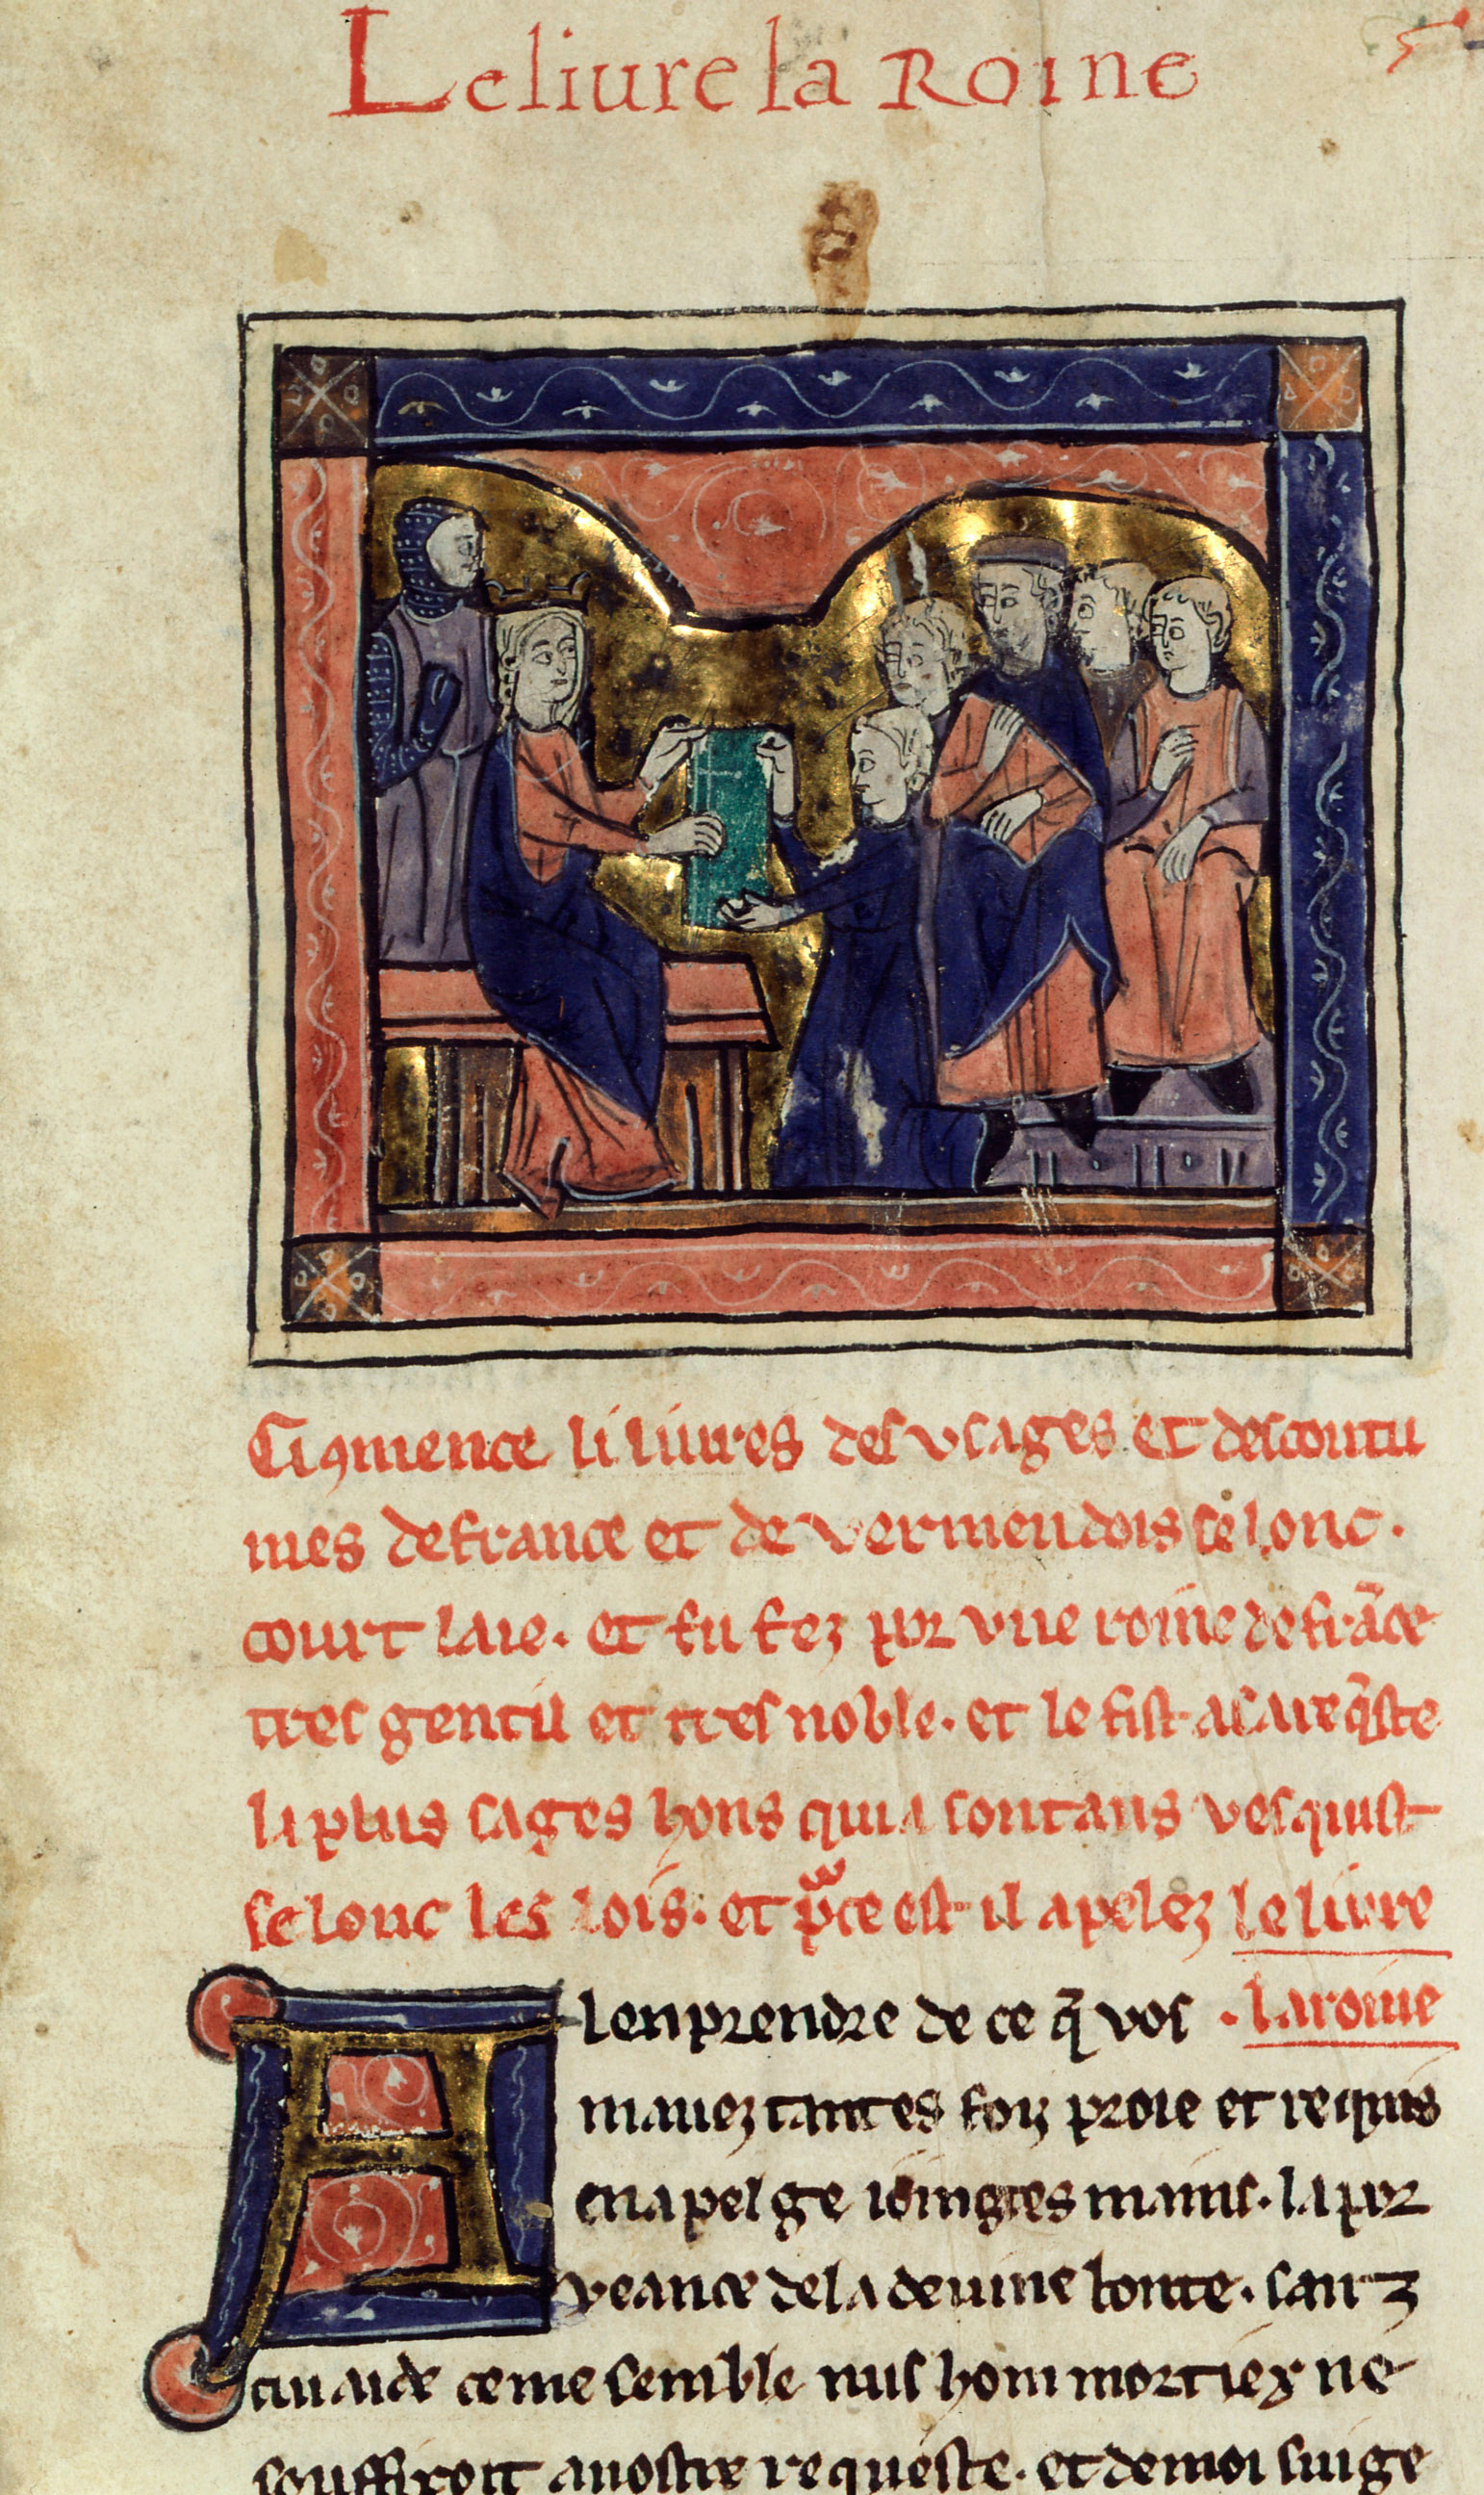 Le liure la Roine
Ci ꝯmence li liures des vsages et des coustu
mes de france et de vermendois selonc .
court laie . et fu fez por vne roine de frāce
tres gentil et tres noble . et le fist a sa reqͥste
li plus sages hons qui a son tans vesquist
selonc les lois . et pͬ ce est il apelez le liure
. la roine
A l enprendre de ce q̄ vos
mauez tantes foiz proie et requis
en apel ge iointes mains . la por
veance de la deuine bonte . sanz
cui aide ce me semble nus hom mortiex ne
souffiroit a uostre requeste . et de moi sui ge